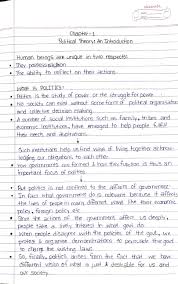 Chapter - 1
Political Theory: An Introduction
Human beings are unique in two respects:
They possess reason
The ability to reflect on their actions.
What is POLITICS?
Politics is the study of power or the struggle for power.
No society can exist without some form of political organisation
and collective decision making.
A number of social institutions such as family, tribes and
economic institutions, have emerged to help people fulfil
their needs and aspirations.
Such institutions help us find ways of living together acknow-
ledging our obligations to each other.
How governments are formed & how they function is thus an
important focus of politics.
But politics is not confined to the affairs of government.
In fact what government do is relevant because it affects
the lives of people in many different ways like their economic
policy, foreign policy etc.
Since the actions of the government affect us deeply,
people take a lively interest in what govt do.
When people disagree with the policies of the govt, we
protest & organise demonstrations to persuade the govt
to change the existing laws.
So, finally, politics arises from the fact that we have
different vision of what is just & desirable for us and
our society.